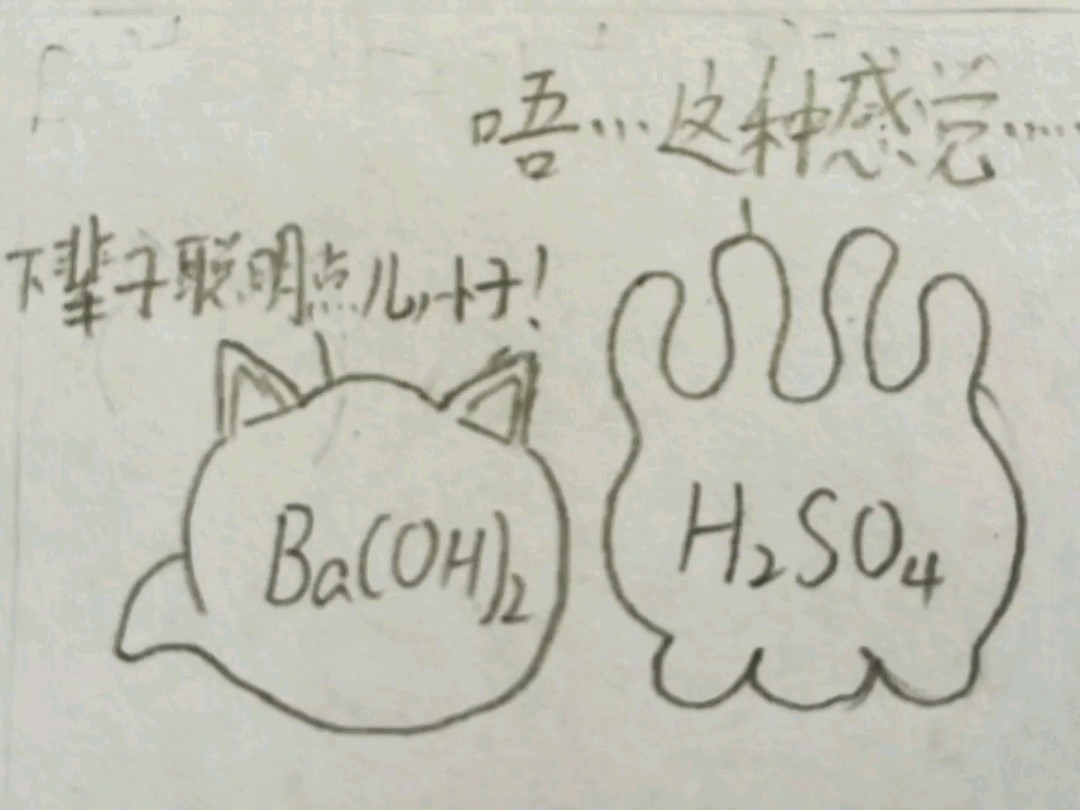 唔…这种感觉……
下辈子聪明点儿,小子!
Ba(OH)₂
H₂SO₄